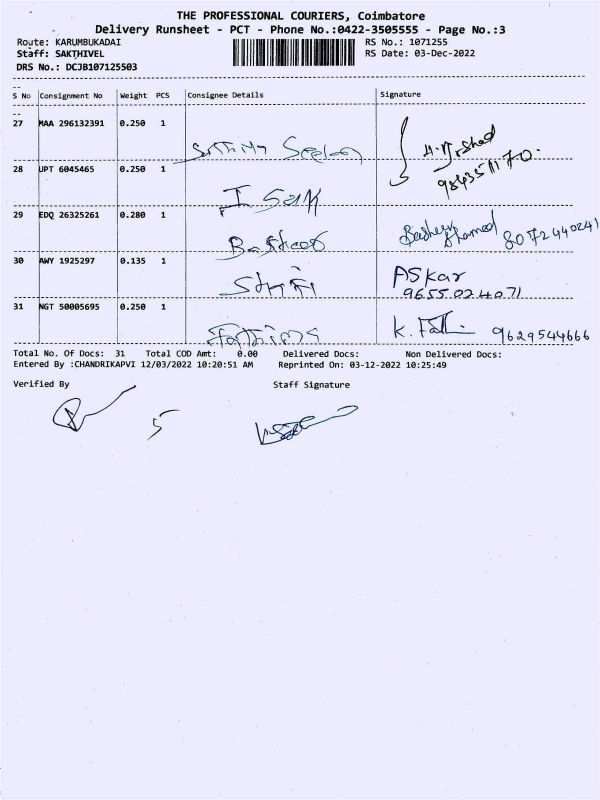 THE PROFESSIONAL COURIERS, Coimbatore
Delivery Runsheet - PCT - Phone No.:0422-3505555 - Page No.:3
Route: KARUMBUKADAI RS No.: 1071255
Staff: SAKTHIVEL RS Date: 03-Dec-2022
DRS No.: DCJB107125503
S No Consignment No Weight PCS Consignee Details Signature
27 MAA 296132391 0.250 1
28 UPT 6045465 0.250 1 I Sak
29 EDQ 26325261 0.280 1 8072440241
30 AWY 1925297 0.135 1 ASkar
9655024071
31 NGT 50005695 0.250 1 9629544666
Total No. Of Docs: 31 Total COD Amt: 0.00 Delivered Docs: Non Delivered Docs:
Entered By :CHANDRIKAPVI 12/03/2022 10:20:51 AM Reprinted On: 03-12-2022 10:25:49
Verified By Staff Signature
5